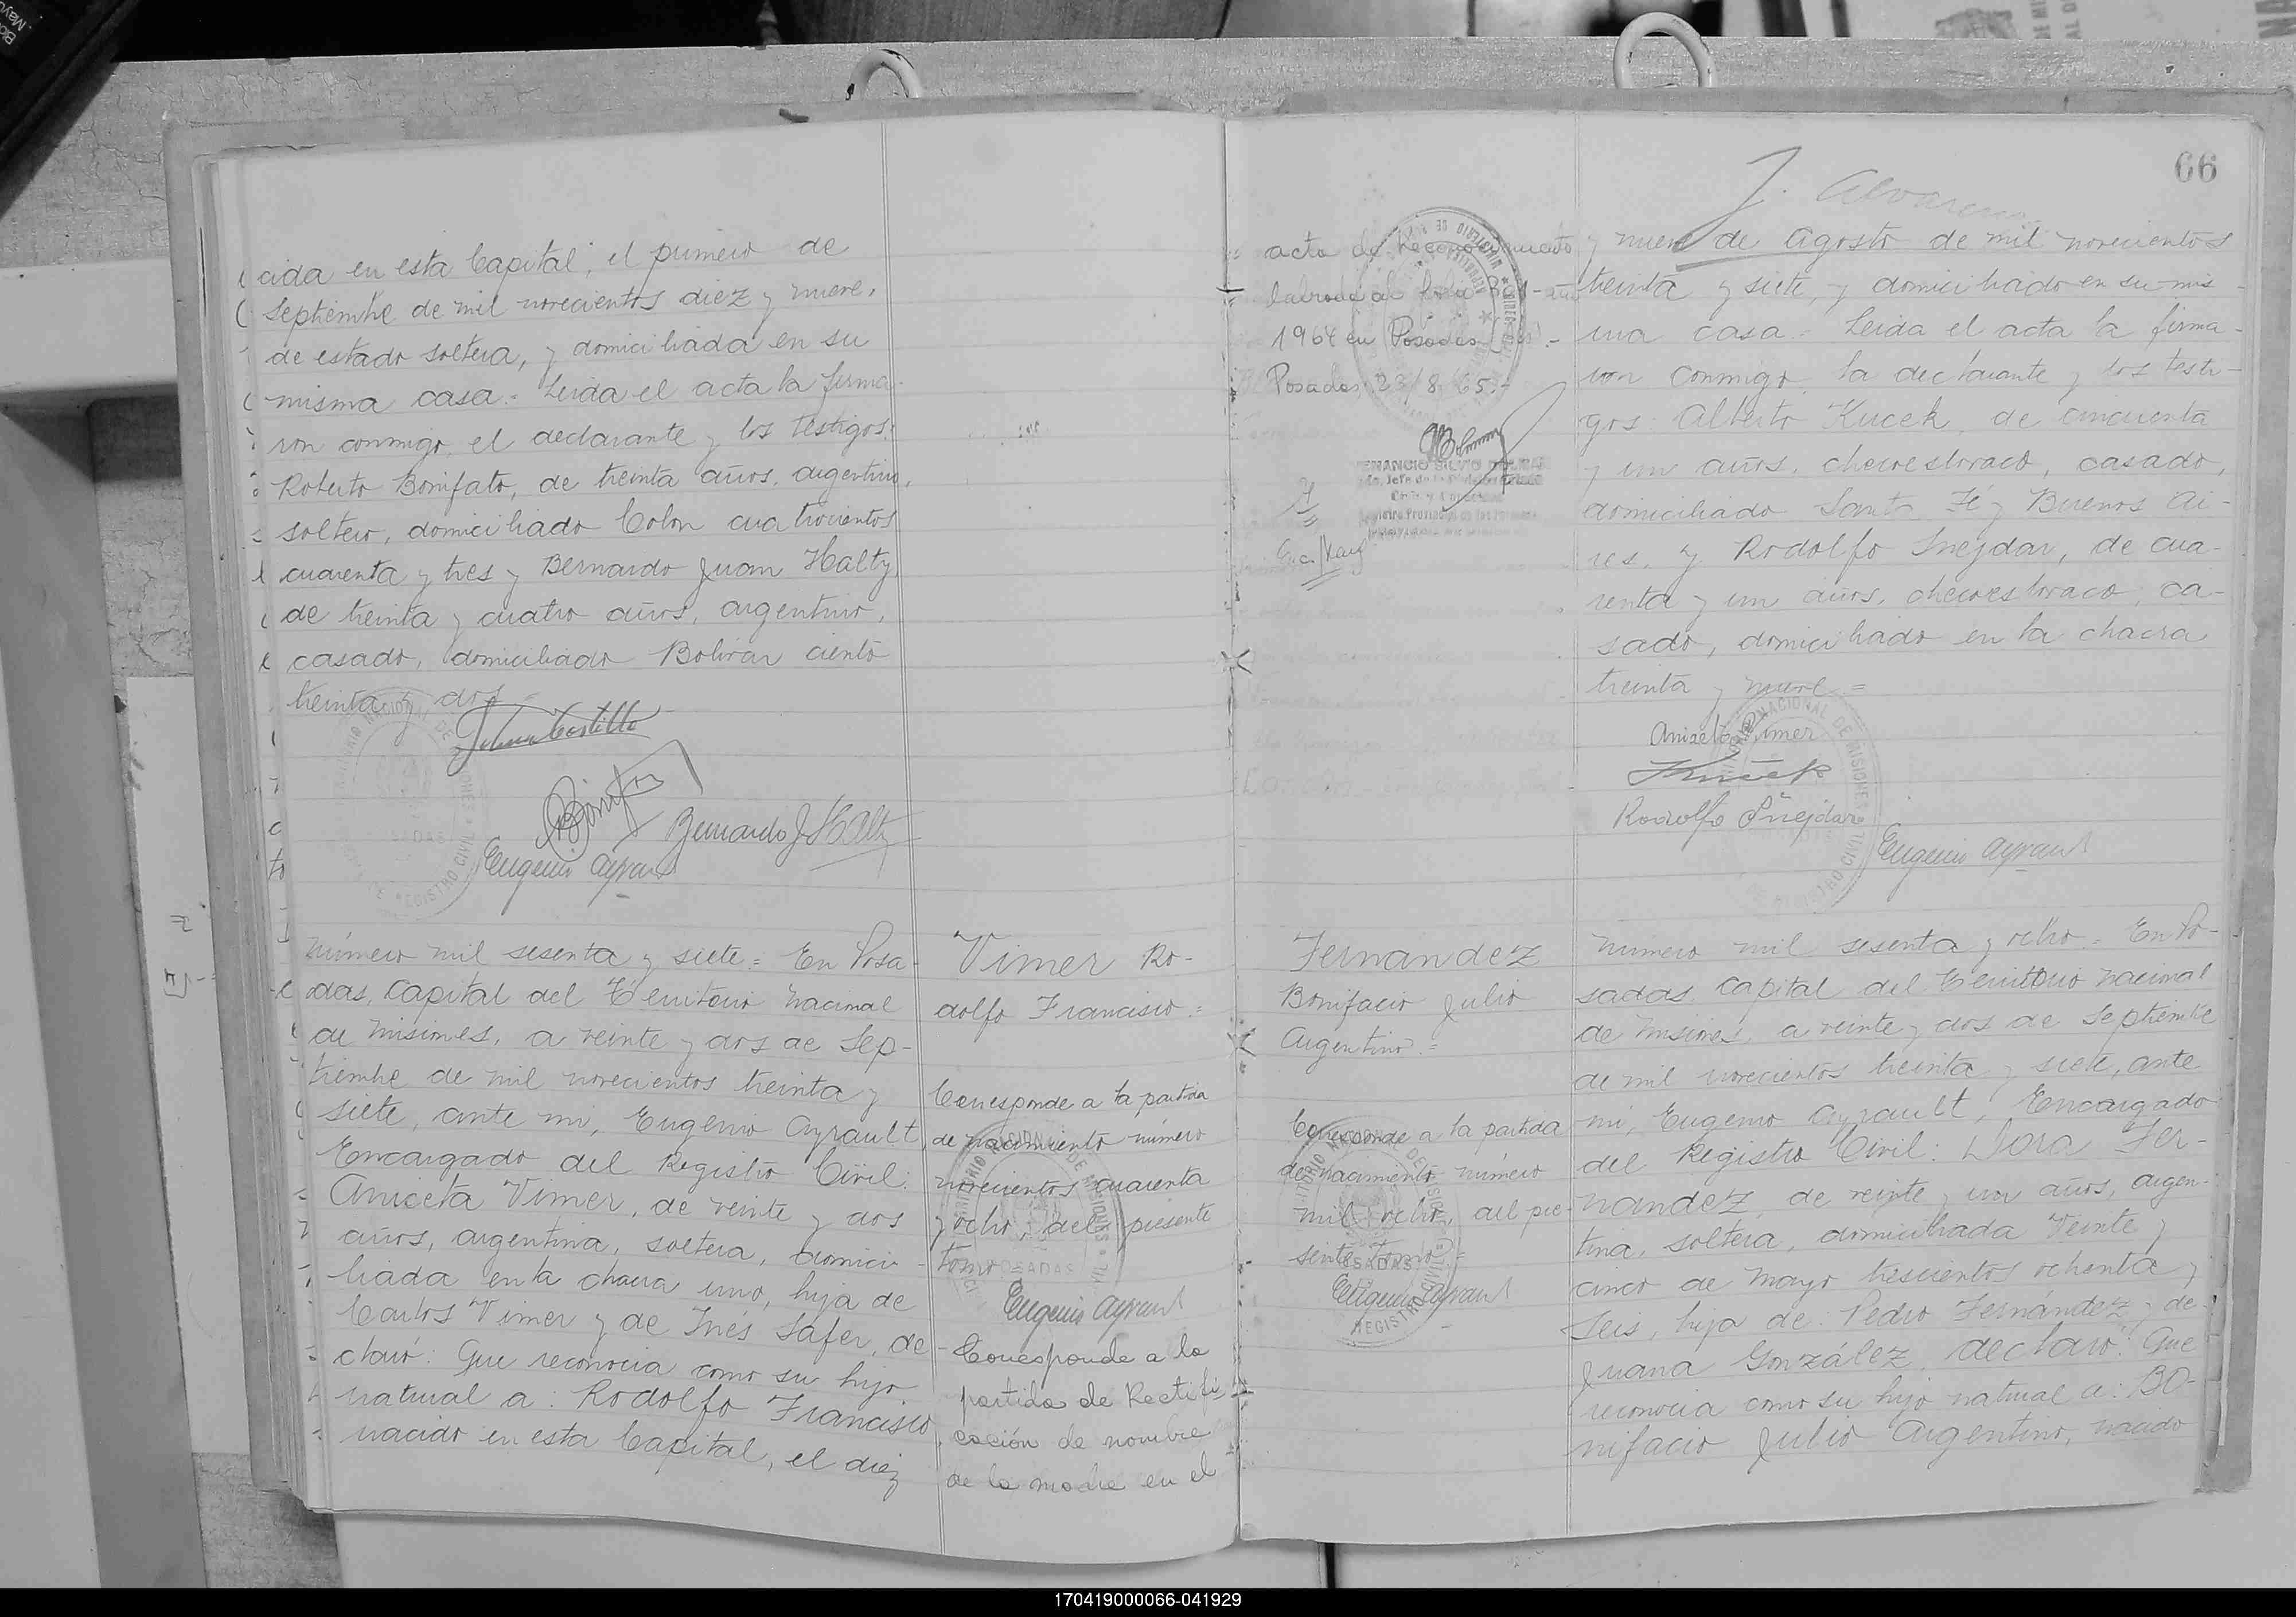 cida en esta Capital, el primero de
Septiembre de mil novecientos diez y nueve,
de estado soltera, y domiciliada en su
misma casa.- Leida el acta la firma-
ron conmigo, el declarante y los testigos:
Roberto Bonifato, de treinta años, argentino,
soltero, domiciliado Colon cuatrocientos
cuarenta y tres y Bernardo Juan Halty,
de treinta y cuatro años, argentino,
casado, domiciliado Bolivar ciento
treinta y dos =
Castillo
Bernardo J Halty
Eugenio Ayrault
Número mil sesenta y siete = En Posa-
das, Capital del Territorio Nacional
de Misiones, a veinte y dos de Sep-
tiembre de mil novecientos treinta y
siete, ante mi, Eugenio Ayrault,
Encargado del Registro Civil:
Aniceta Vimer, de veinte y dos
años, argentina, soltera, domici-
liada en la chacra uno, hija de
Carlos Vimer y de Inés Safer, de-
claró: Que reconocia como su hijo
natural a: Rodolfo Francisco,
nacido en esta Capital, el diez
Vimer Ro-
dolfo Francisco.=
Corresponde a la partida
de nacimiento número
novecientos cuarenta
y ocho, del presente
tomo =
Eugenio Ayrault
Corresponde a la
partida de Rectifi-
cación de nombre
de la madre en el
66
J. Alvarenga
acta de Reconocimiento
labrada al folio
1964 en Posadas
Posadas, 23/8/65.-
VENANCIO SILVIO
y nueve de Agosto de mil novecientos
treinta y siete, y domiciliado en su mis-
ma casa.- Leida el acta la firma-
ron conmigo, la declarante y los testi-
gos: Alberto Kucek, de cincuenta
y un años, checoeslovaco, casado,
domiciliado Santa Fé y Buenos Ai-
res, y Rodolfo Snejdar, de cua-
renta y un años, checoeslovaco, ca-
sado, domiciliado en la chacra
treinta y nueve =
Aniceta Vimer
Kucek
Rodolfo Šnejdar
Eugenio Ayrault
Fernandez
Bonifacio Julio
Argentino.=
Corresponde a la partida
de nacimiento número
mil ocho, del pre-
sente tomo =
Eugenio Ayrault
Número mil sesenta y ocho = En Po-
sadas, Capital del Territorio Nacional
de Misiones, a veinte y dos de Septiembre
de mil novecientos treinta y siete, ante
mi, Eugenio Ayrault, Encargado
del Registro Civil: Dora Fer-
nandez, de veinte y un años, argen-
tina, soltera, domiciliada Veinte y
cinco de Mayo trescientos ochenta y
seis, hija de Pedro Fernández y de
Juana González, declaró: Que
reconocia como su hijo natural a: BO-
nifacio Julio Argentino, nacido
170419000066-041929